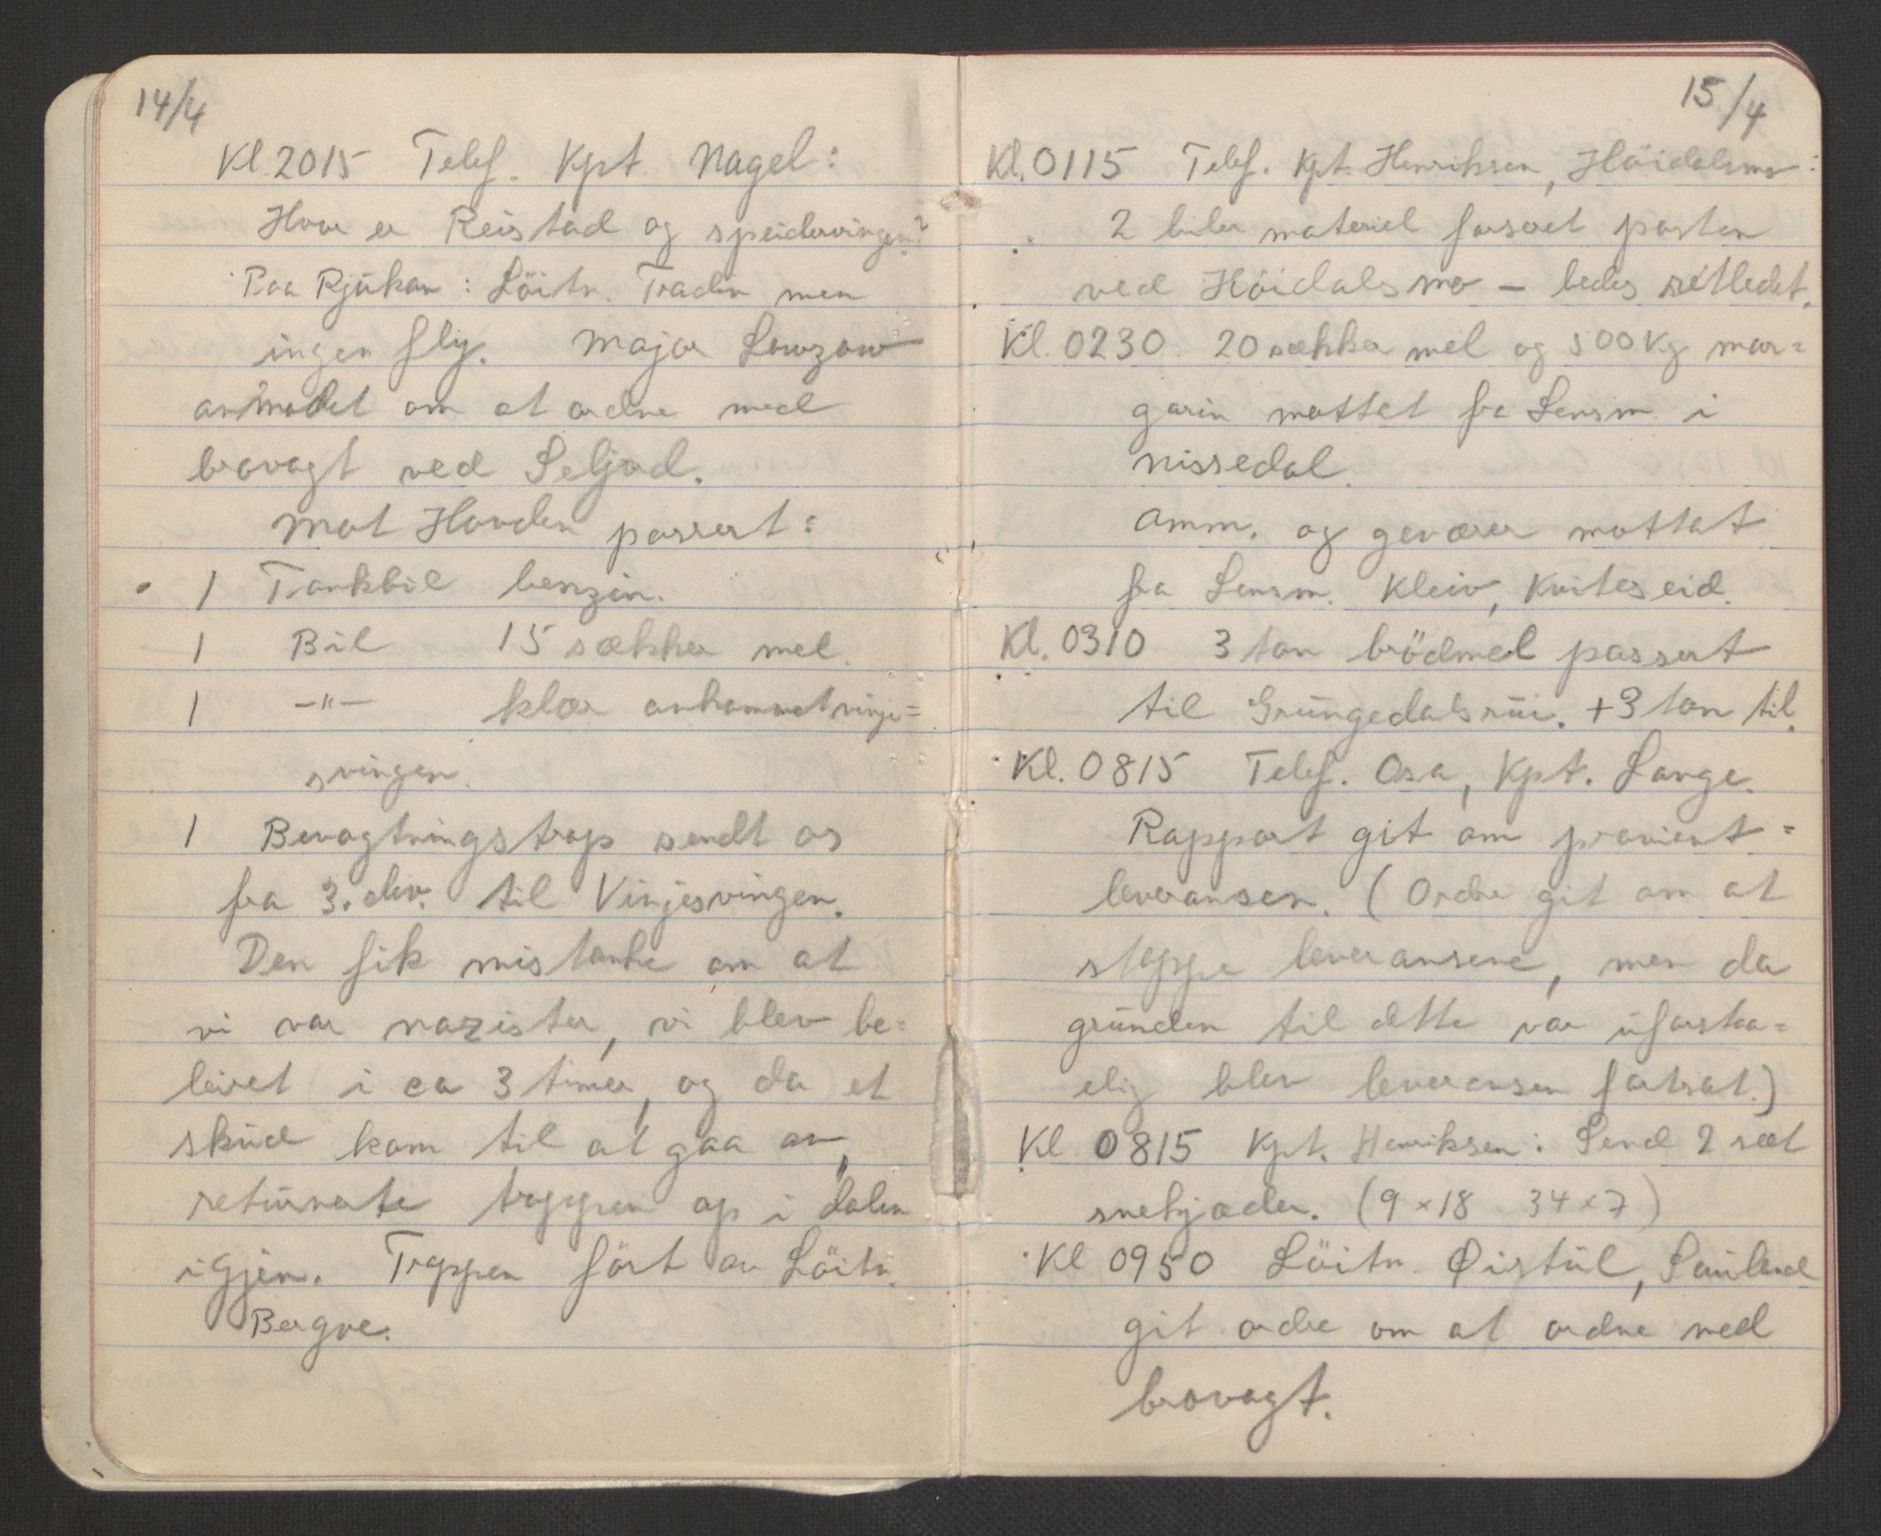 14/4
Kl. 2015 Telef. Kpt. Nagel:
Hvor er Reistad og speidervingen?
Paa Rjukan: Löitn. Traden men
ingen fly. Major Lowzow
anmodet om at ordne med
brovagt ved Seljord.
Mot Hovden passert:
1 Tankbil benzin.
1 Bil 15 sækker mel.
1 -"- klær ankommet vinje=
svingen.
1 Bevogtningstrop sendt os
fra 3. div. til Vinjesvingen.
Den fik mistanke om at
vi var nazister, vi blev be=
leiret i ca 3 timer, og da et
skud kom til at gaa av,
returnerte troppen op i dalen
igjen. Troppen fört av Löitn.
Bergve.
15/4
Kl. 0115 Telef. Kpt. Henriksen, Höidalsmo:
2 biler materiel forseret posten
ved Höidalsmo – bedes retledet.
Kl. 0230. 20 sækker mel og 500 kg mar=
garin mottat fra Lensm. i
Nissedal.
Amm. og geværer mottat
fra Lensm. Kleiv, Kviteseid.
Kl. 0310 3 ton brödmel passert
til Grungedalsrui. + 3 ton til.
Kl. 0815 Telef. Osa, Kpt. Lange.
Rapport git om proviant=
leveransen. (Ordre git om at
stoppe leveransene, men da
grunden til dette var uforstaa=
elig blev leveransen fortsat.)
Kl 0815 Kpt. Henriksen: Send 2 sæt
snekjæder. (9 x 18 34 x 7)
Kl 0950 Löitn. Øistul, Sauland
git ordre om at ordne med
brovagt.